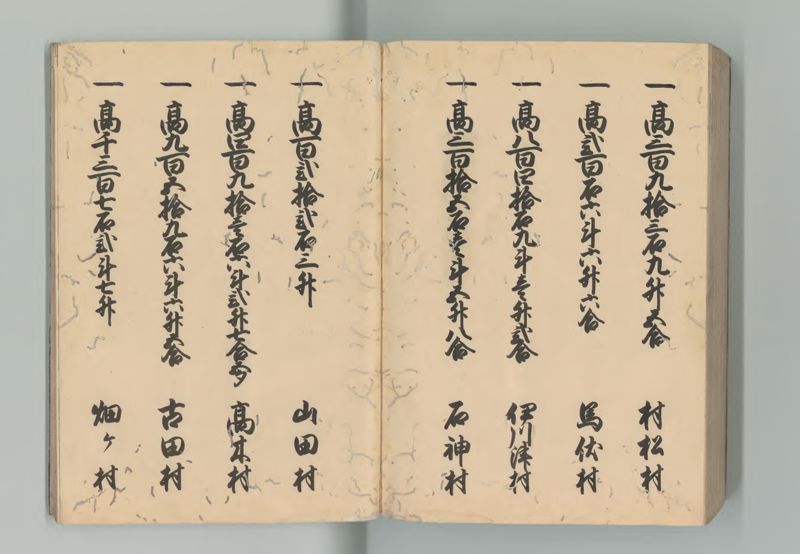 一高三百九拾三石九升五合 村松村
一高弐百石六斗六升六合 馬伏村
一高八百四拾石九斗壱升弐合 伊川津村
一高三百拾五石壱斗五升八合 石神村
一高百弐拾弐石三升 山田村
一高四百九拾壱石八斗弐升七合 高木村
一高九百五拾九石六斗六升五合 古田村
一高千三百七石弐斗七升 畑ヶ村